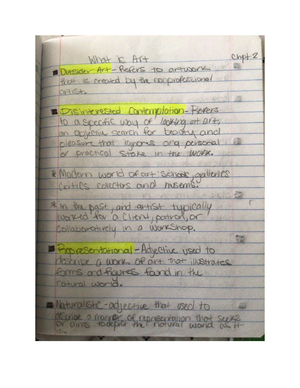 What Is Art Chpt. 2
Outsider Art - Refers to artwork
that is created by the nonprofessional
artist.
Disinterested Contemplation - Refers
to a specific way of looking at art,
an objective search for beauty and
pleasure that ignores any personal
or practical stake in the work.
* Modern world of art schools, galleries
critics collectors and museums.
* In the past, and artist typically
worked for a client, patron, or
collaboratively in a workshop.
Representational - Adjective used to
describe a work of art that illustrates
forms and figures found in the
natural world.
Naturalistic - adjective that used to
describe a manner of representation that seeks
or aims to depict the natural world as it